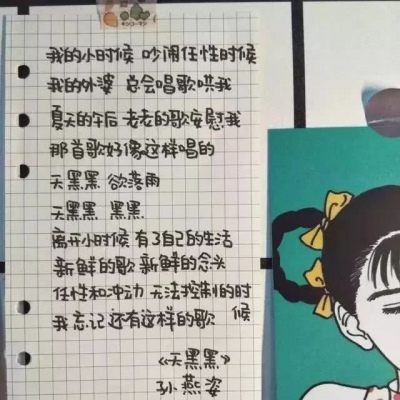 我的小时候 吵闹任性时候
我的外婆 总会唱歌哄我
夏天的午后 老老的歌安慰我
那首歌好像这样唱的
天黑黑 欲落雨
天黑黑 黑黑
离开小时候 有了自己的生活
新鲜的歌 新鲜的念头
任性和冲动 无法控制的时
我忘记还有这样的歌 候
《天黑黑》
孙燕姿